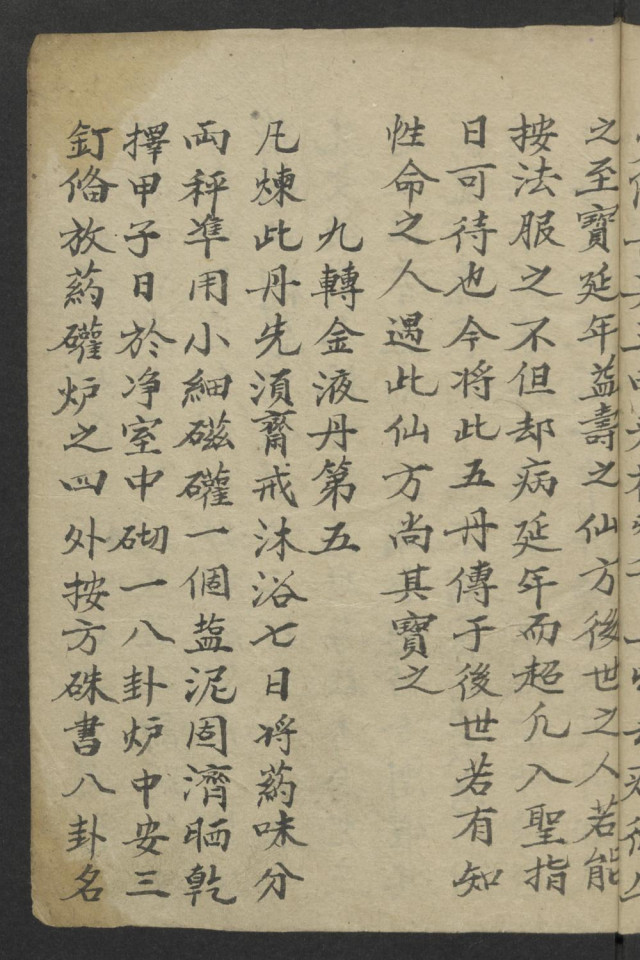 之至寶延年益壽之仙方後世之人若能
按法服之不但却病延年而超凡入聖指
日可待也今将此五丹傳于後世若有知
性命之人遇此仙方尚其寶之
九轉金液丹第五
凡煉此丹先湏齋戒沐浴七日将药味分
両秤準用小細磁礶一個塩泥固濟晒乾
擇甲子日於净室中砌一八卦炉中安三
釘俻放药礶炉之四外按方硃書八卦名